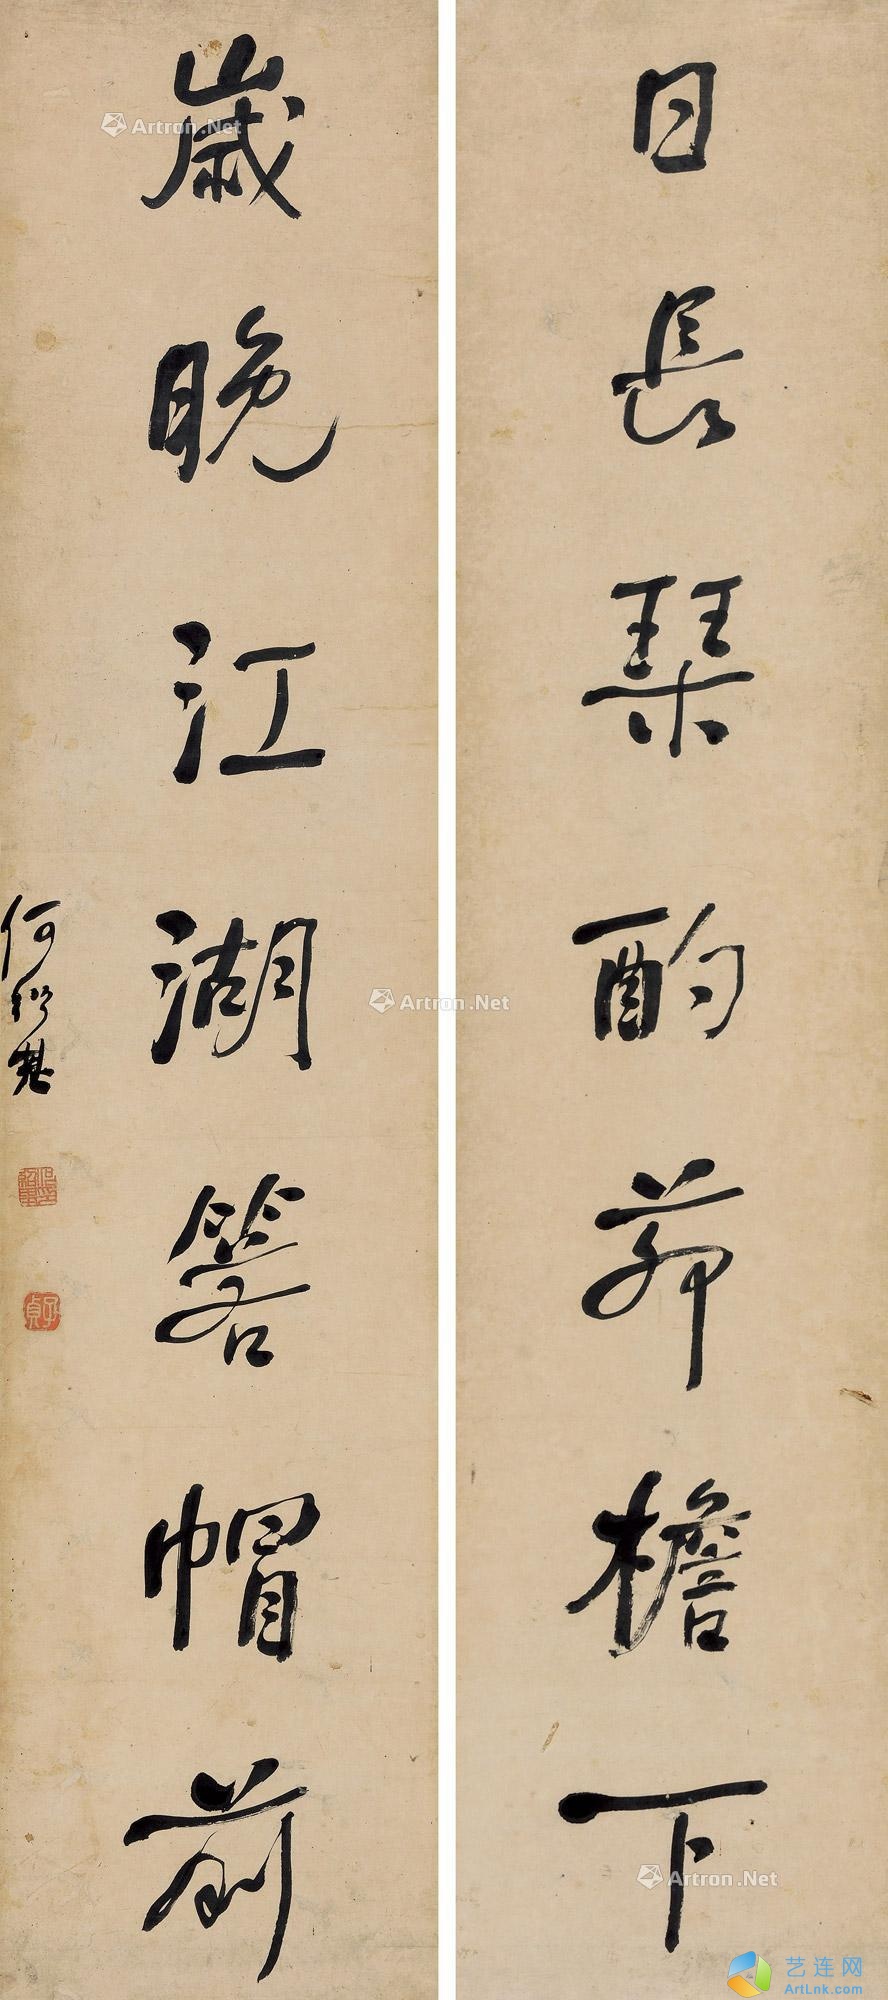 日長琹酌茆檐下
歲晚江湖箬帽前
何紹基
子貞
Artron.Net
Artron.Net
Artron.Net
艺连网
ArtLnk.com